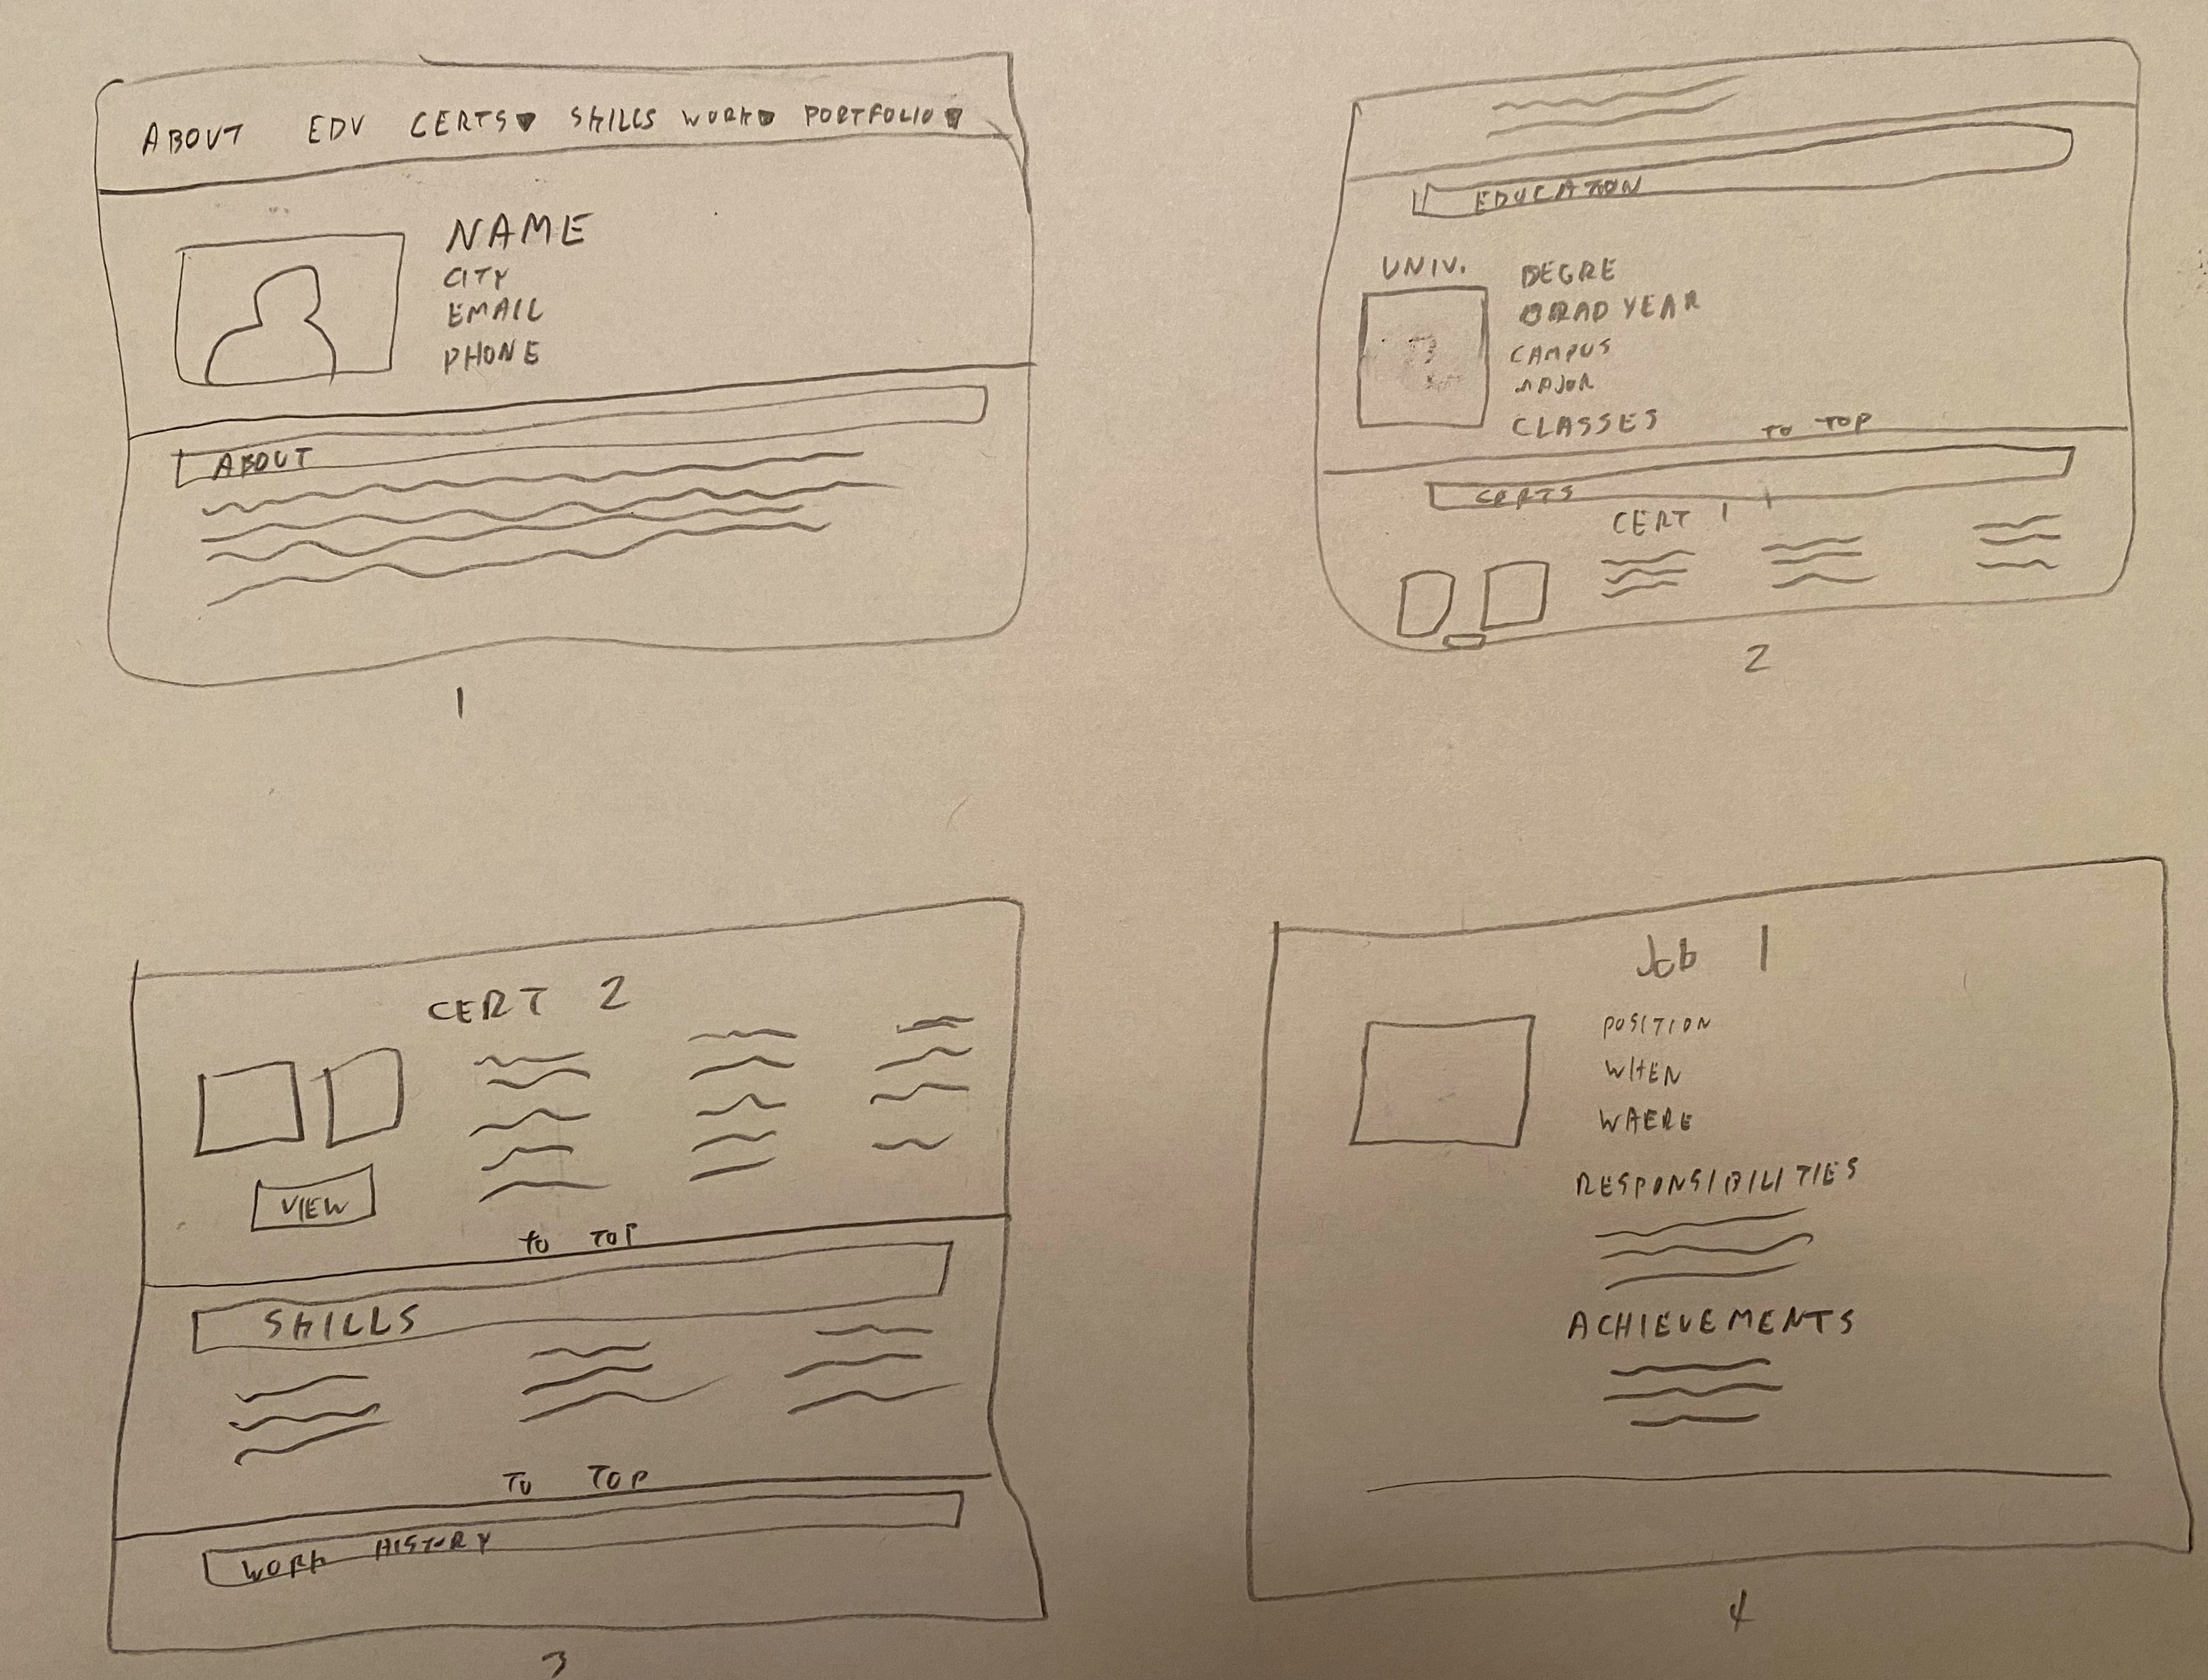 ABOUT EDU CERTS SKILLS WORK PORTFOLIO
NAME
CITY
EMAIL
PHONE
ABOUT
1
EDUCATION
UNIV.
DEGRE
GRAD YEAR
CAMPUS
MAJOR
CLASSES
TO TOP
CERTS
CERT 1
2
CERT 2
VIEW
TO TOP
SKILLS
TO TOP
WORK HISTORY
3
Job 1
POSITION
WHEN
WHERE
RESPONSIBILITIES
ACHIEVEMENTS
4